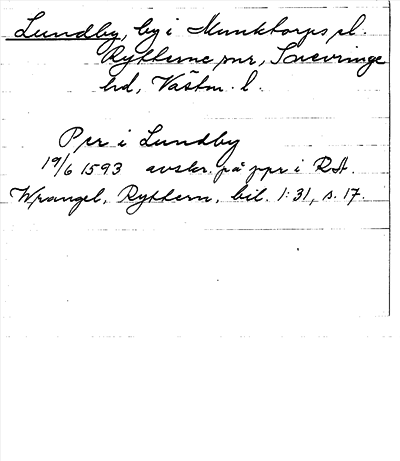 Lundby, by i Munktorps sl.
Rytterne snr, Snevringe
hd, Västm. l.
Per i Lundby
19/6 1593 avskr. på ppr i RA.
Wrangel, Ryttern, bil. 1:31, s. 17.